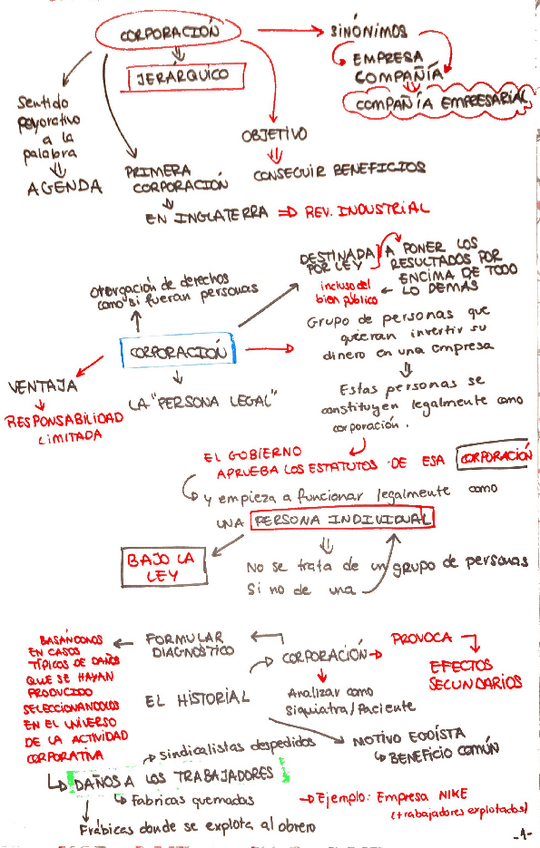 CORPORACIÓN
SINÓNIMOS
EMPRESA
COMPAÑÍA
COMPAÑÍA EMPRESARIAL
JERÁRQUICO
Sentido
peyorativo
a la
palabra
AGENDA
OBJETIVO
CONSEGUIR BENEFICIOS
PRIMERA
CORPORACIÓN
EN INGLATERRA ⇒ REV. INDUSTRIAL
Otorgación de derechos
como si fueran personas
DESTINADA
POR LEY
A PONER LOS
RESULTADOS POR
ENCIMA DE TODO
LO DEMÁS
incluso del
bien público
CORPORACIÓN
Grupo de personas que
quieran invertir su
dinero en una empresa
VENTAJA
RESPONSABILIDAD
LIMITADA
LA "PERSONA LEGAL"
Estas personas se
constituyen legalmente como
corporación.
EL GOBIERNO
APRUEBA LOS ESTATUTOS DE ESA CORPORACIÓN
y empieza a funcionar legalmente como
UNA PERSONA INDIVIDUAL
BAJO LA
LEY
No se trata de un grupo de personas
Si no de una
BASÁNDONOS
EN CASOS
TÍPICOS DE DAÑOS
QUE SE HAYAN
PRODUCIDO
SELECCIONÁNDOLOS
EN EL UNIVERSO
DE LA ACTIVIDAD
CORPORATIVA
FORMULAR
DIAGNÓSTICO
CORPORACIÓN
PROVOCA
EFECTOS
SECUNDARIOS
EL HISTORIAL
Analizar como
Siquiatra/Paciente
MOTIVO EGOÍSTA
BENEFICIO COMÚN
sindicalistas despedidos
DAÑOS A LOS TRABAJADORES
Fabricas quemadas
Frábicas donde se explota al obrero
Ejemplo: Empresa NIKE
(trabajadores explotados)
-1-